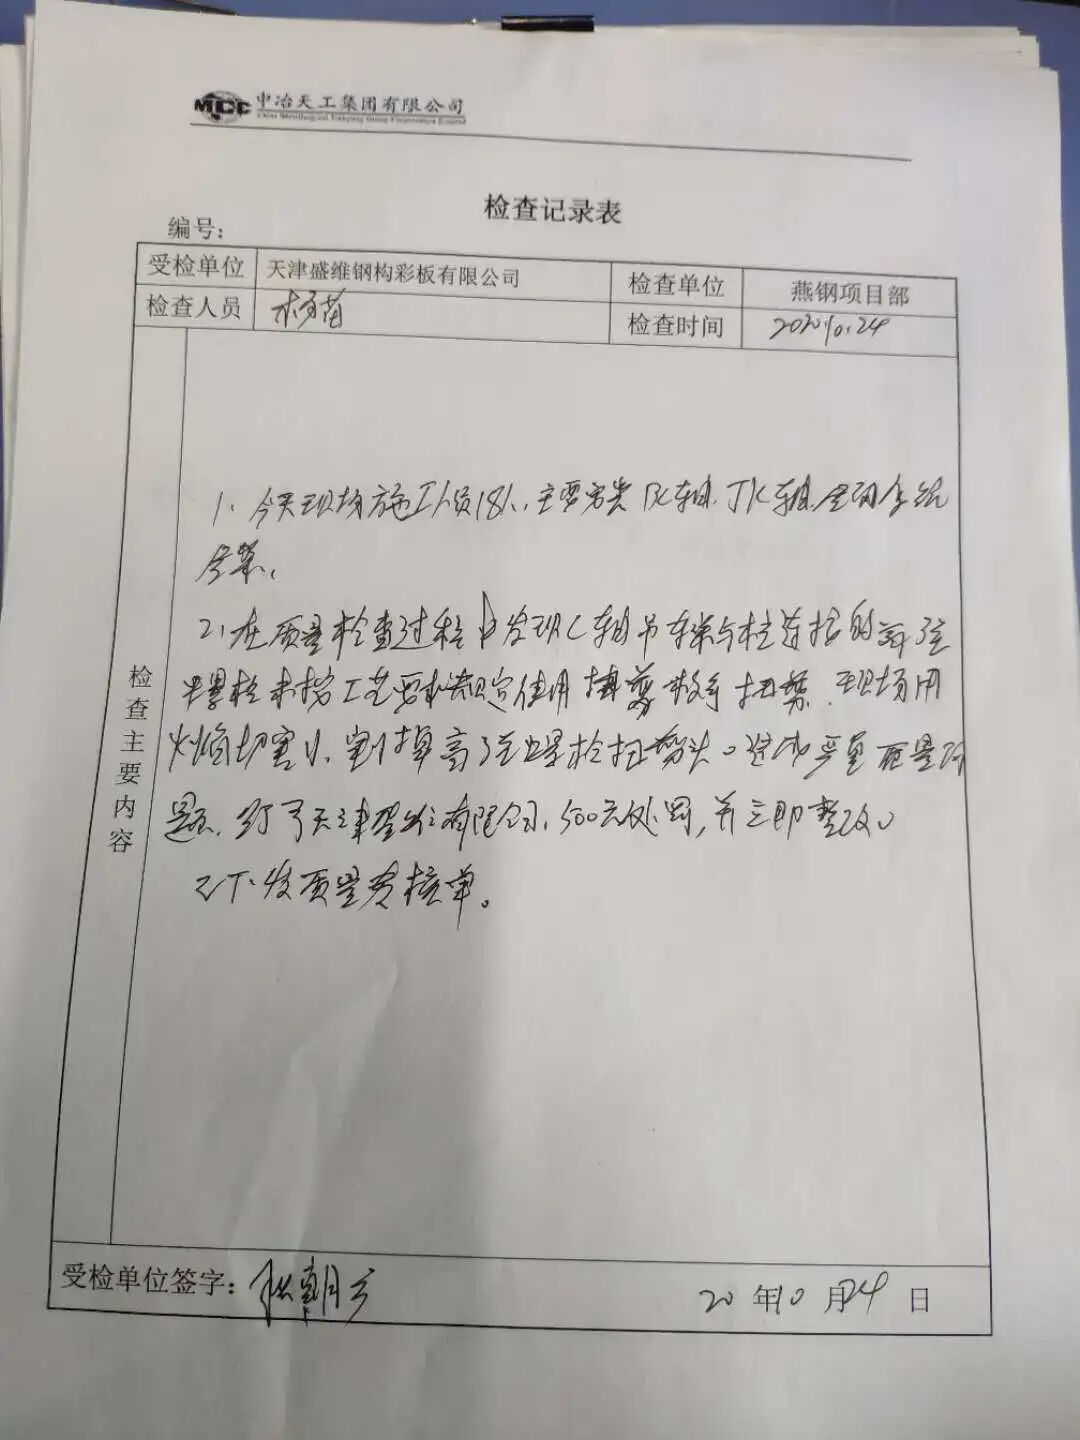 MCC 中冶天工集团有限公司
检查记录表
编号：
受检单位 天津盛维钢构彩板有限公司 检查单位 燕钢项目部
检查人员 检查时间 2020.10.24
检查主要内容
1、今天现场施工人员18人、主要 轴、JK轴
2、在质量检查过程中发现C轴吊车梁与柱连接的高强
螺栓未按工艺要求规定使用 扭剪 现场用
火焰切割 割掉高强螺栓扭剪头。这为严重质量问
题、 天津 有限公司、500元处罚，并立即整改。
下发质量考核单。
受检单位签字： 20年10月24日